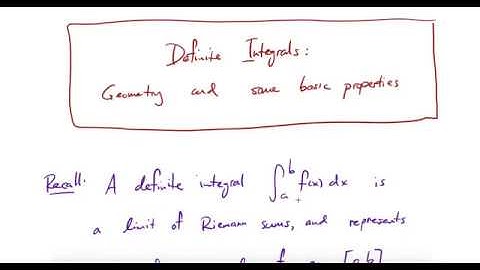 Definite Integrals:
Geometry and some basic properties
Recall: A definite integral ∫_a^b f(x) dx is
a limit of Riemann sums, and represents
[a,b]